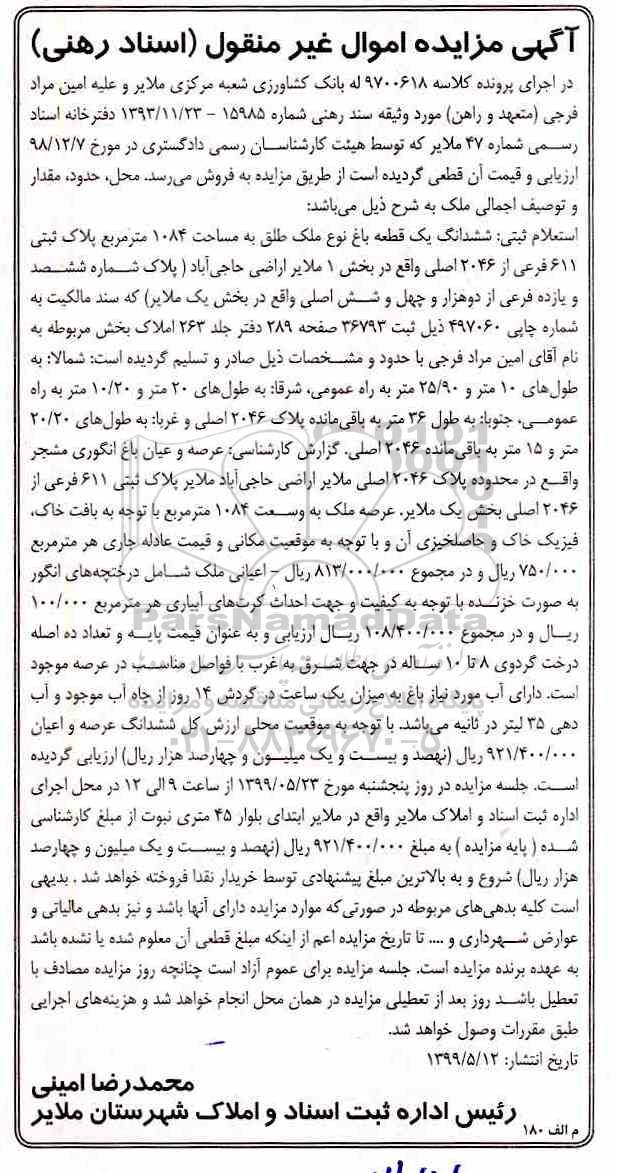 آگهی مزایده اموال غیر منقول (اسناد رهنی)
در اجرای پرونده کلاسه ۹۷۰۰۶۱۸ له بانک کشاورزی شعبه مرکزی ملایر و علیه امین مراد
فرجی (متعهد و راهن) مورد وثیقه سند رهنی شماره ۱۵۹۸۵ - ۱۳۹۳/۱۱/۲۳ دفترخانه اسناد
رسمی شماره ۴۷ ملایر که توسط هیئت کارشناسان رسمی دادگستری در مورخ ۹۸/۱۲/۷
ارزیابی و قیمت آن قطعی گردیده است از طریق مزایده به فروش می‌رسد. محل، حدود، مقدار
و توصیف اجمالی ملک به شرح ذیل می‌باشد:
استعلام ثبتی: ششدانگ یک قطعه باغ نوع ملک طلق به مساحت ۱۰۸۴ مترمربع پلاک ثبتی
۶۱۱ فرعی از ۲۰۴۶ اصلی واقع در بخش ۱ ملایر اراضی حاجی‌آباد ( پلاک شماره ششصد
و یازده فرعی از دوهزار و چهل و شش اصلی واقع در بخش یک ملایر) که سند مالکیت به
شماره چاپی ۴۹۷۰۶۰ ذیل ثبت ۳۶۷۹۳ صفحه ۲۸۹ دفتر جلد ۲۶۳ املاک بخش مربوطه به
نام آقای امین مراد فرجی با حدود و مشخصات ذیل صادر و تسلیم گردیده است: شمالا: به
طول‌های ۱۰ متر و ۲۵/۹۰ متر به راه عمومی، شرقا: به طول‌های ۲۰ متر و ۱۰/۲۰ متر به راه
عمومی، جنوبا: به طول ۳۶ متر به باقی‌مانده پلاک ۲۰۴۶ اصلی و غربا: به طول‌های ۲۰/۲۰
متر و ۱۵ متر به باقی‌مانده ۲۰۴۶ اصلی. گزارش کارشناسی: عرصه و عیان باغ انگوری مشجر
واقع در محدوده پلاک ۲۰۴۶ اصلی ملایر اراضی حاجی‌آباد ملایر پلاک ثبتی ۶۱۱ فرعی از
۲۰۴۶ اصلی بخش یک ملایر. عرصه ملک به وسعت ۱۰۸۴ مترمربع با توجه به بافت خاک،
فیزیک خاک و حاصلخیزی آن و با توجه به موقعیت مکانی و قیمت عادله جاری هر مترمربع
۷۵۰/۰۰۰ ریال و در مجموع ۸۱۳/۰۰۰/۰۰۰ ریال - اعیانی ملک شامل درختچه‌های انگور
به صورت خزنده با توجه به کیفیت و جهت احداث کرت‌های آبیاری هر مترمربع ۱۰۰/۰۰۰
ریال و در مجموع ۱۰۸/۴۰۰/۰۰۰ ریال ارزیابی و به عنوان قیمت پایه و تعداد ده اصله
درخت گردوی ۸ تا ۱۰ ساله در جهت شرق به غرب با فواصل مناسب در عرصه موجود
است. دارای آب مورد نیاز باغ به میزان یک ساعت در گردش ۱۴ روز از چاه آب موجود و آب
دهی ۳۵ لیتر در ثانیه می‌باشد. با توجه به موقعیت محلی ارزش کل ششدانگ عرصه و اعیان
۹۲۱/۴۰۰/۰۰۰ ریال (نهصد و بیست و یک میلیون و چهارصد هزار ریال) ارزیابی گردیده
است. جلسه مزایده در روز پنجشنبه مورخ ۱۳۹۹/۰۵/۲۳ از ساعت ۹ الی ۱۲ در محل اجرای
اداره ثبت اسناد و املاک ملایر واقع در ملایر ابتدای بلوار ۴۵ متری نبوت از مبلغ کارشناسی
شده ( پایه مزایده ) به مبلغ ۹۲۱/۴۰۰/۰۰۰ ریال (نهصد و بیست و یک میلیون و چهارصد
هزار ریال) شروع و به بالاترین مبلغ پیشنهادی توسط خریدار نقدا فروخته خواهد شد . بدیهی
است کلیه بدهی‌های مربوطه در صورتی‌که موارد مزایده دارای آنها باشد و نیز بدهی مالیاتی و
عوارض شهرداری و .... تا تاریخ مزایده اعم از اینکه مبلغ قطعی آن معلوم شده یا نشده باشد
به عهده برنده مزایده است. جلسه مزایده برای عموم آزاد است چنانچه روز مزایده مصادف با
تعطیل باشد روز بعد از تعطیلی مزایده در همان محل انجام خواهد شد و هزینه‌های اجرایی
طبق مقررات وصول خواهد شد.
تاریخ انتشار: ۱۳۹۹/۵/۱۲
محمدرضا امینی
رئیس اداره ثبت اسناد و املاک شهرستان ملایر
م الف ۱۸۰
ParsNamadData
پایگاه اطلاع رسانی مناقصه و مزایده
۰۲۱-۸۸۳۴۹۶۷۰-۵